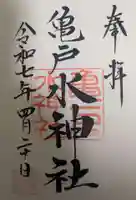 奉拝
亀戸水神社
令和七年四月二十日